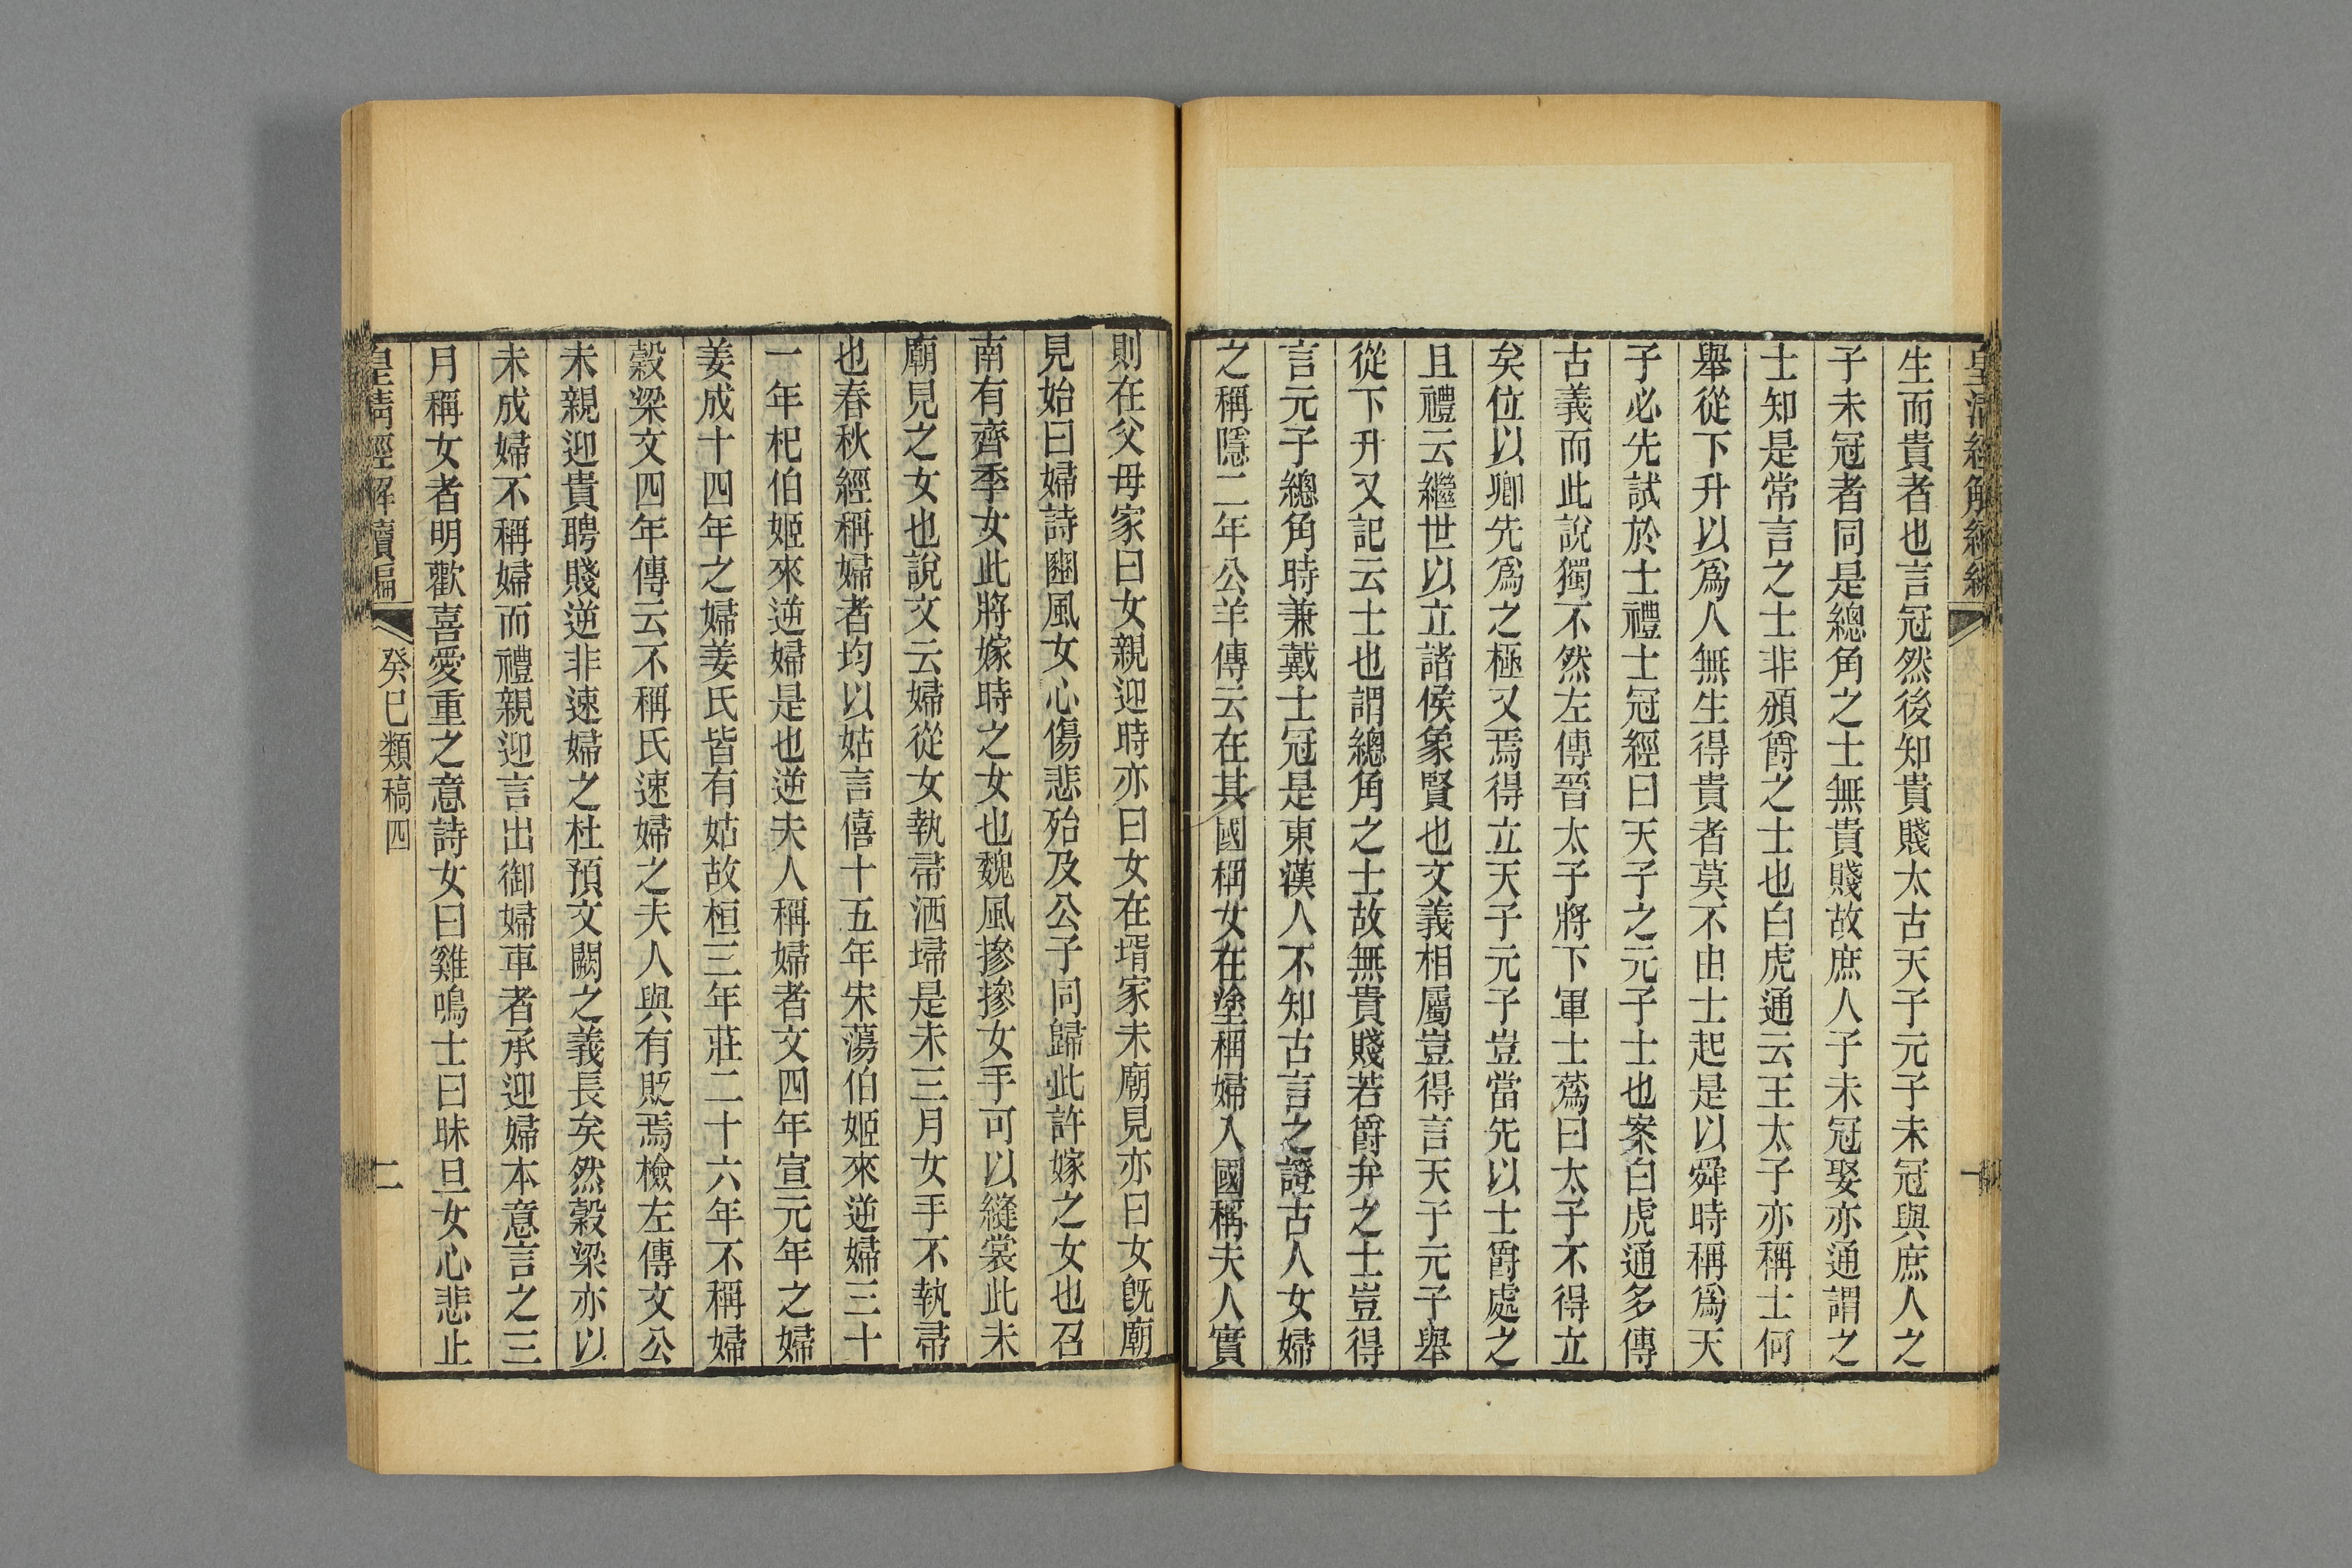 生而貴者也言冠然後知貴賤太古天子元子未冠與庶人之
子未冠者同是總角之士無貴賤故庶人子未冠娶亦通謂之
士知是常言之士非頒爵之士也白虎通云王太子亦稱士何
舉從下升以爲人無生得貴者莫不由士起是以舜時稱爲天
子必先試於士禮士冠經曰天子之元子士也案白虎通多傳
古義而此說獨不然左傳晉太子將下軍士蔿曰太子不得立
矣位以卿先爲之極又焉得立天子元子豈當先以士爵處之
且禮云繼世以立諸侯象賢也文義相屬豈得言天子元子舉
從下升又記云士也謂總角之士故無貴賤若爵弁之士豈得
言元子總角時兼戴士冠是東漢人不知古言之證古人女婦
之稱隱二年公羊傳云在其國稱女在塗稱婦入國稱夫人實
則在父母家曰女親迎時亦曰女在壻家未廟見亦曰女旣廟
見始曰婦詩豳風女心傷悲殆及公子同歸此許嫁之女也召
南有齊季女此將嫁時之女也魏風摻摻女手可以縫裳此未
廟見之女也說文云婦從女執帚洒埽是未三月女手不執帚
也春秋經稱婦者均以姑言僖十五年宋蕩伯姬來逆婦三十
一年杞伯姬來逆婦是也逆夫人稱婦者文四年宣元年之婦
姜成十四年之婦姜氏皆有姑故桓三年莊二十六年不稱婦
穀梁文四年傳云不稱氏速婦之夫人與有貶焉檢左傳文公
未親迎貴聘賤逆非速婦之杜預文闕之義長矣然穀梁亦以
未成婦不稱婦而禮親迎言出御婦車者承迎婦本意言之三
月稱女者明歡喜愛重之意詩女曰雞鳴士曰昧旦女心悲止
皇清經解續編
癸巳類稿四
二